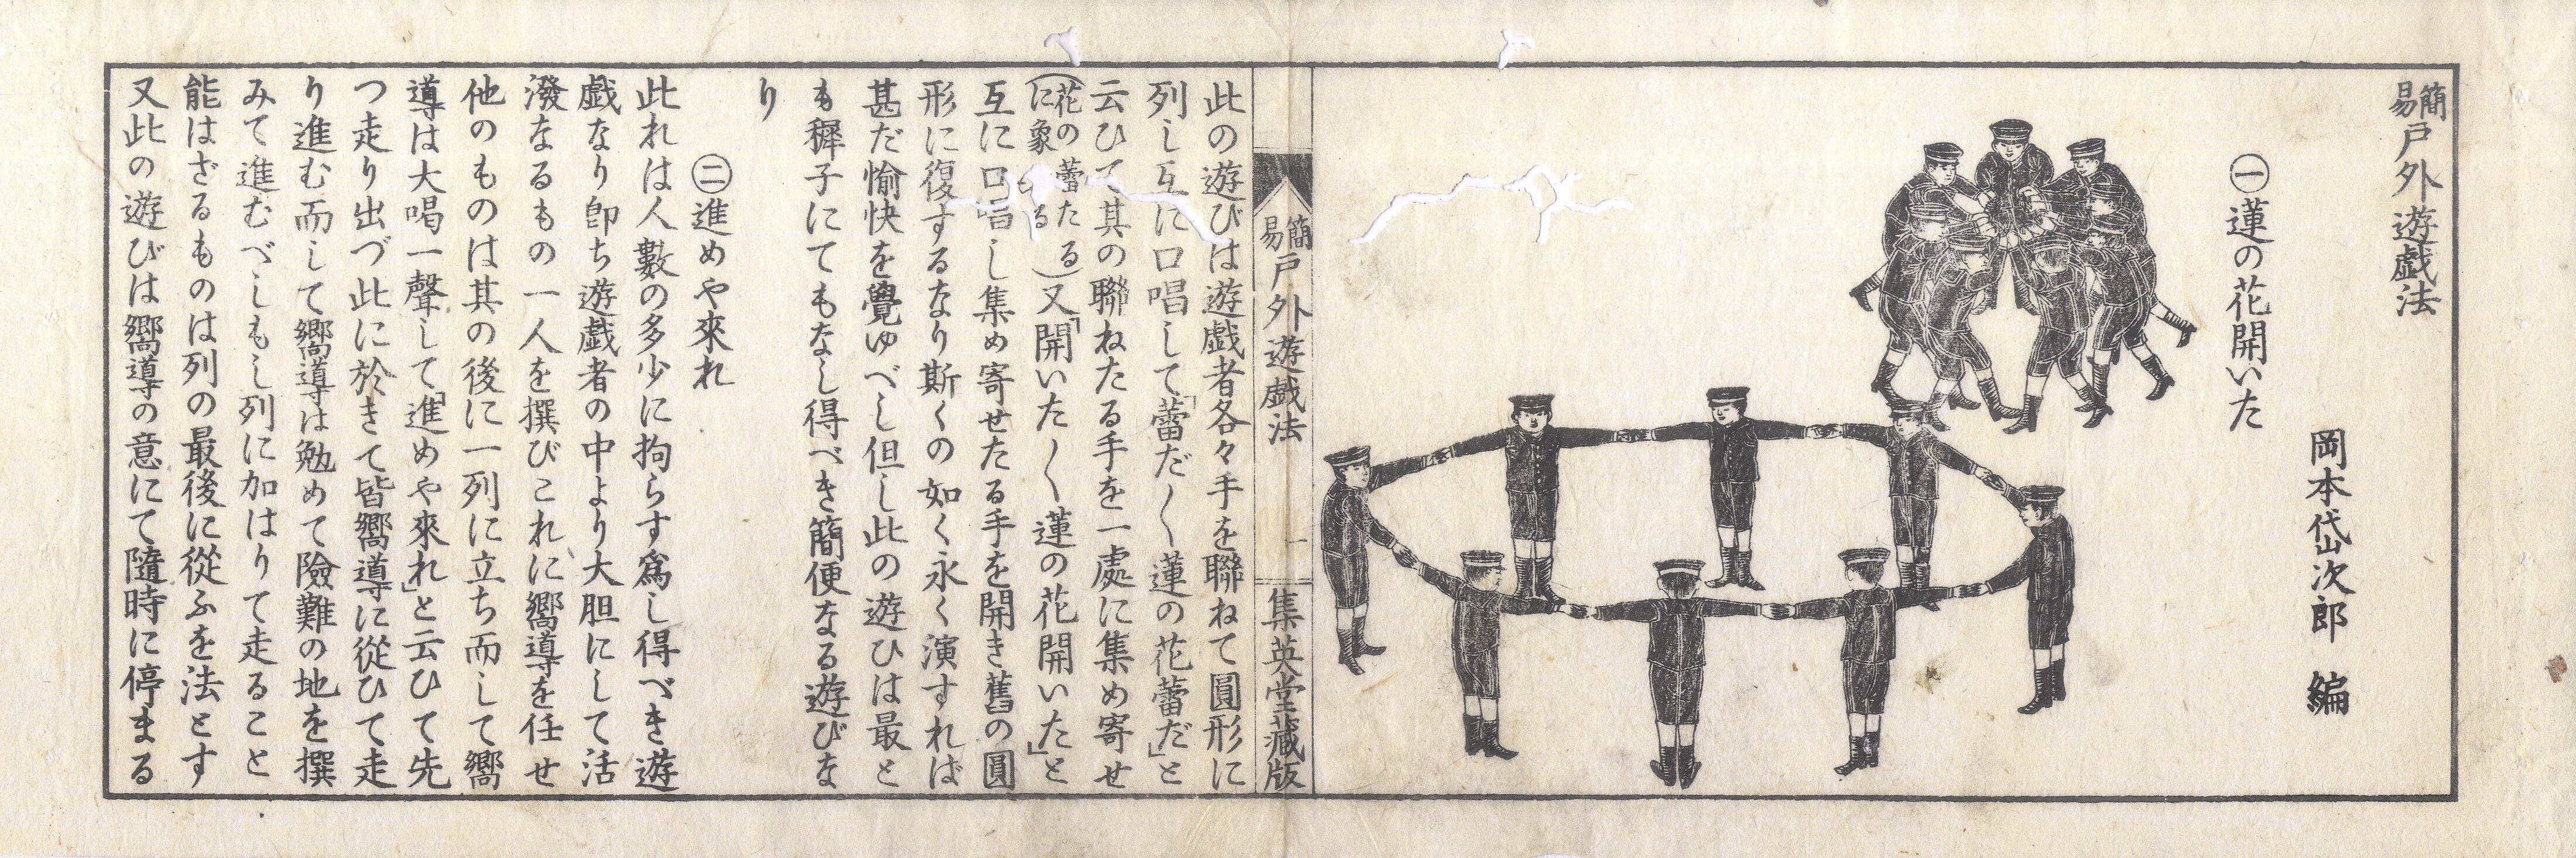 簡易戸外遊戯法
岡本岱次郎 編
㊀蓮の花開いた
簡易戸外遊戯法 一 集英堂藏版
此の遊びは遊戯者各々手を聯ねて圓形に
列し互に口唱して「蕾だ〱蓮の花蕾だ」と
云ひて其の聯ねたる手を一處に集め寄せ
(花の蕾たる
に象る)又「開いた〱蓮の花開いた」と
互に口唱し集め寄せたる手を開き舊の圓
形に復するなり斯くの如く永く演すれば
甚だ愉快を覺ゆべし但し此の遊ひは最と
も穉子にてもなし得べき簡便なる遊びな
り
㊁進めや來れ
此れは人數の多少に拘らす爲し得べき遊
戯なり卽ち遊戯者の中より大胆にして活
潑なるもの一人を撰びこれに嚮導を任せ
他のものは其の後に一列に立ち而して嚮
導は大喝一聲して「進めや來れ」と云ひて先
つ走り出づ此に於きて皆嚮導に從ひて走
り進む而して嚮導は勉めて險難の地を撰
みて進むべしもし列に加はりて走ること
能はざるものは列の最後に從ふを法とす
又此の遊びは嚮導の意にて隨時に停まる